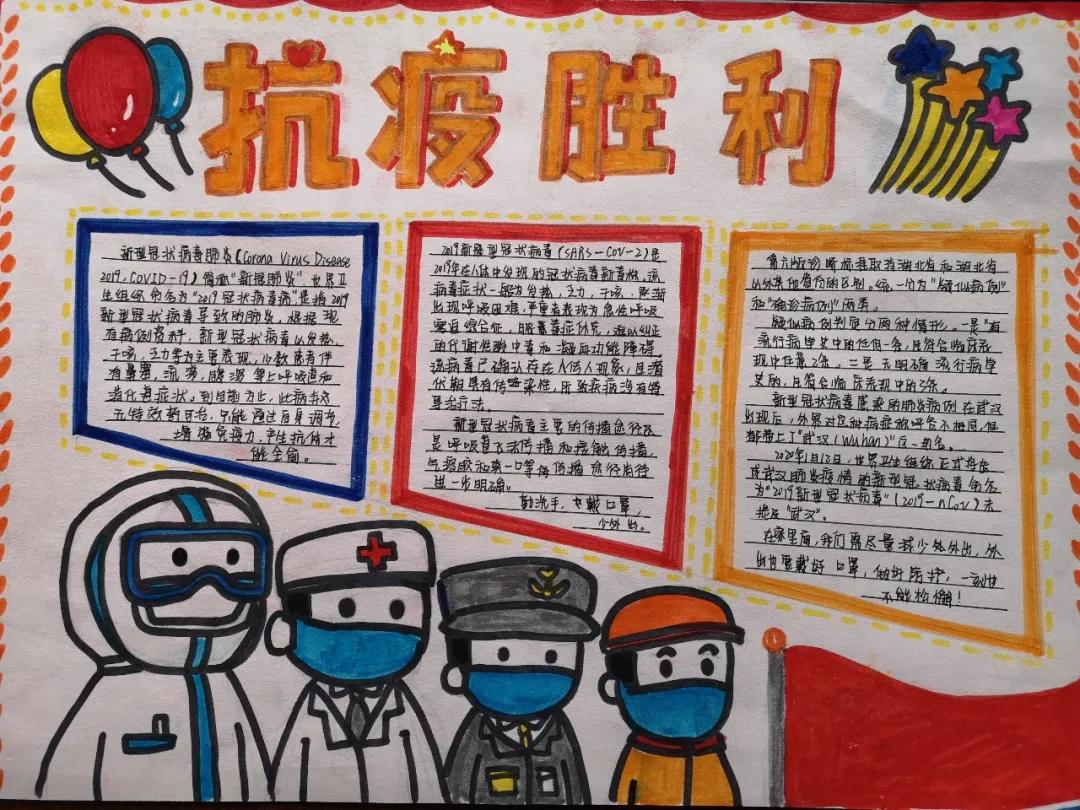 抗疫胜利
新型冠状病毒肺炎(Corona Virus Disease
2019，COVID-19）简称“新冠肺炎”世界卫
生组织命名为“2019冠状病毒病”是指2019
新型冠状病毒导致的肺炎，根据现
有病例资料，新型冠状病毒以发热、
干咳，乏力等为主要表现，少数患者伴
有鼻塞、流涕，腹泻等上呼吸道和
消化道症状。到目前为止，此病毒
无特效药可治，只能通过自身调节，
增强免疫力，产生抗体才
能全愈。
2019新型冠状病毒(SARS-CoV-2)是
2019年在人体中发现的冠状病毒新毒株，该
病毒症状一般为发热，乏力，干咳，逐渐
出现呼吸困难，严重者表现为急性呼吸
窘迫综合征，脓毒症休克，难以纠正
的代谢性酸中毒和凝血功能障碍，
该病毒已确认存在人传人现象，且潜
伏期具有传染性，所致疾病没有特
异治疗法。
新型冠状病毒主要的传播途径仅
是呼吸道飞沫传播和接触传播，
气溶胶和粪—口等传播途径尚待
进一步明确。
勤洗手，戴口罩，
少外出。
第六版诊断标准取消湖北省和湖北省
以外其他省份的区别，统一分为“疑似病例”
和“确诊病例”两类。
疑似病例判定分两种情形。一是“有
流行病学史中的任何一条，且符合临床表
现中任意2条。二是无明确流行病学
史的，且符合临床表现中的3条。
新型冠状病毒感染的肺炎病例在武汉
出现后，外界对这种病症称呼各不相同，但
都带上了“武汉(Wuhan)”这一地名。
2020年1月12日，世界卫生组织正式将造
成武汉肺炎疫情的新型冠状病毒命名
为“2019新型冠状病毒”(2019-nCoV)未
提及“武汉”。
在家里面，我们需尽量减少外出，外
出也要戴好口罩，做好防护，一刻也
不能松懈！